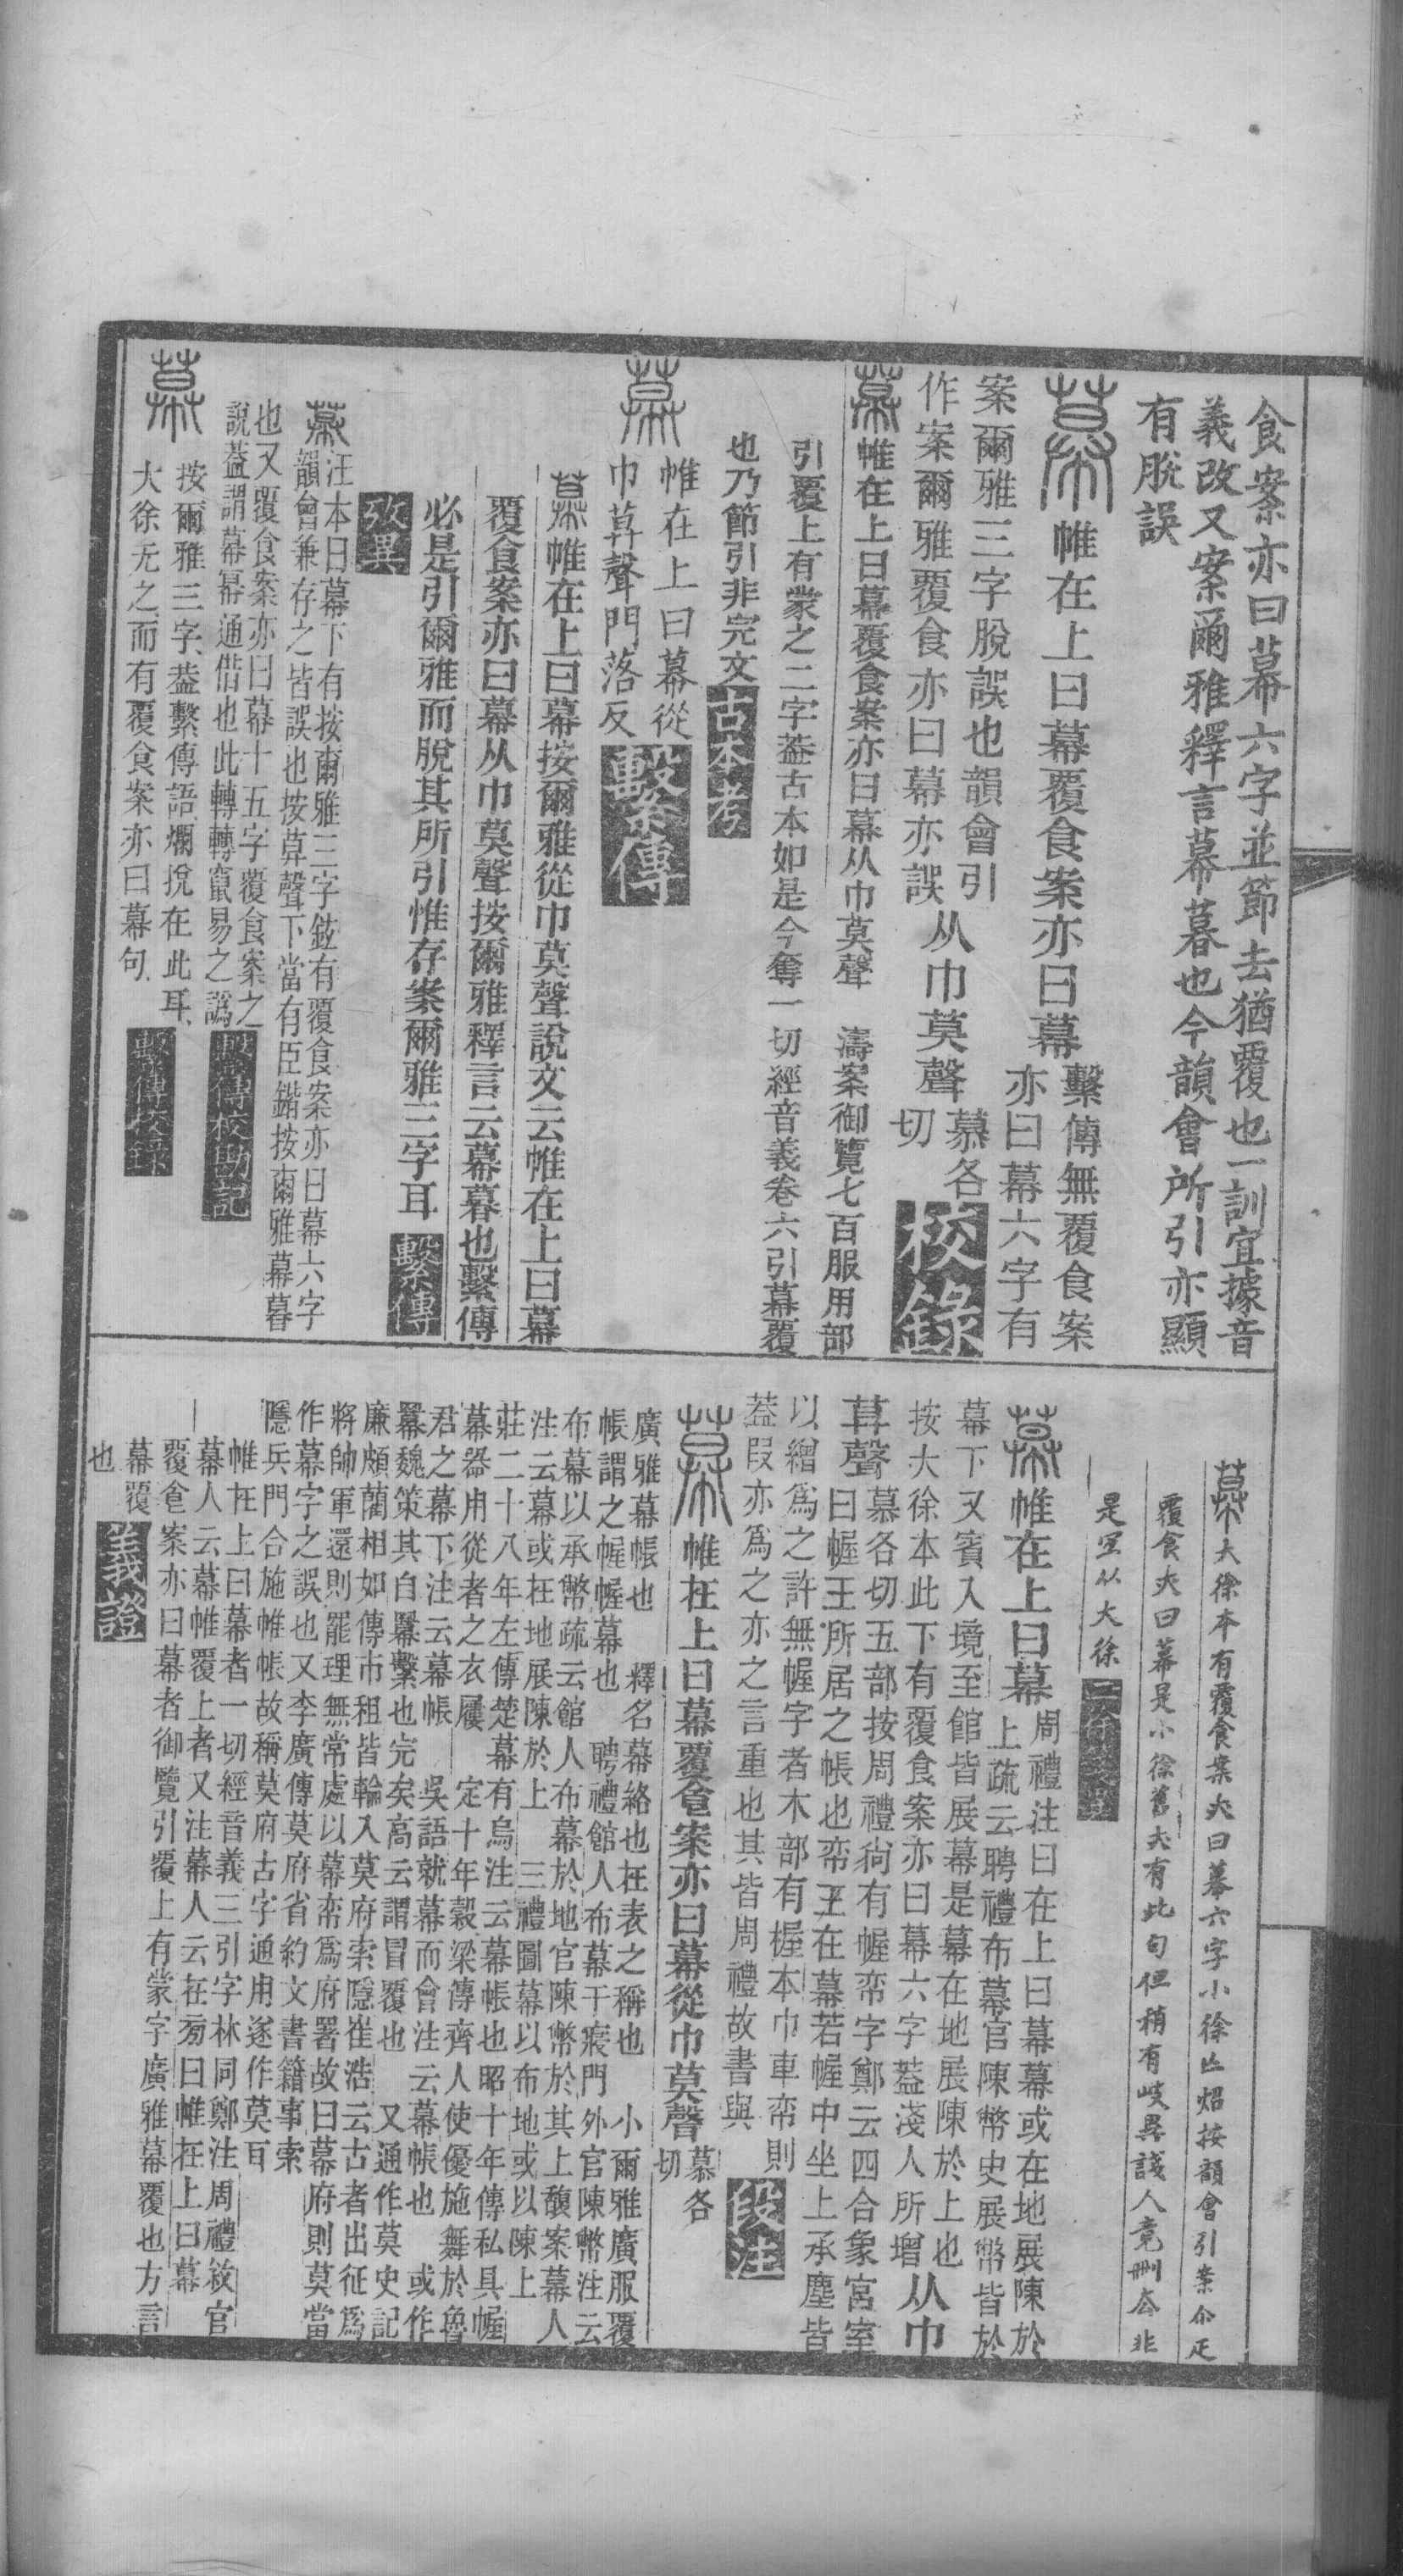 食案亦曰幕六字並節去猶覆也一訓宜據音
義改又案爾雅釋言幕暮也今韻會所引亦顯
有脫誤
幕 帷在上曰幕覆食案亦曰幕
繫傳無覆食案
亦曰幕六字有
案爾雅三字脫誤也韻會引
作案爾雅覆食亦曰幕亦誤
从巾莫聲
慕各
切
校錄
幕帷在上曰幕覆食案亦曰幕从巾莫聲 濤案御覽七百服用部
引覆上有蒙之二字葢古本如是今奪一切經音義卷六引幕覆
也乃節引非完文 古本考
幕 帷在上曰幕從
巾莫聲門落反 繫傳
幕帷在上曰幕按爾雅從巾莫聲說文云帷在上曰幕
覆食案亦曰幕从巾莫聲按爾雅釋言云幕暮也繫傳
必是引爾雅而脫其所引惟存案爾雅三字耳 繫傳
攷異
幕汪本曰幕下有按爾雅三字鉉有覆食案亦曰幕六字
韻會兼存之皆誤也按莫聲下當有臣鍇按爾雅幕暮
也又覆食案亦曰幕十五字覆食案之
說葢謂幕冪通借也此轉轉竄易之譌 繫傳校勘記
幕 按爾雅三字葢繫傳語爛捝在此耳
大徐无之而有覆食案亦曰幕句 繫傳校錄
幕大徐本有覆食案亦曰幕六字小徐亡炤按韻會引案尒疋
覆食亦曰幕是小徐舊亦有此句但稍有岐異諓人竟刪去非
是宜从大徐 二徐箋異
幕帷在上曰幕
周禮注曰在上曰幕幕或在地展陳於
上疏云聘禮布幕官陳幣史展幣皆於
幕下又賓入境至館皆展幕是幕在地展陳於上也
按大徐本此下有覆食案亦曰幕六字葢淺人所增
从巾
莫聲
慕各切五部按周禮尙有幄帟字鄭云四合象宮室
曰幄王所居之帳也帟王在幕若幄中坐上承塵皆
以繒爲之許無幄字者木部有楃本巾車帟則
葢叚亦爲之亦之言重也其皆周禮故書與 段注
幕 帷在上曰幕覆食案亦曰幕從巾莫聲
慕各
切
廣雅幕帳也 釋名幕絡也在表之稱也 小爾雅廣服覆
帳謂之幄幄幕也 聘禮館人布幕于寢門外官陳幣注云
布幕以承幣疏云館人布幕於地官陳幣於其上馥案幕人
注云幕或在地展陳於上 三禮圖幕以布地或以陳上
莊二十八年左傳楚幕有烏注云幕帳也昭十年傳私具幄
幕器用從者之衣屨 定十年穀梁傳齊人使優施舞於魯
君之幕下注云幕帳 吳語就幕而會注云幕帳也 或作
羃魏策其自羃繫也完矣高云謂冒覆也 又通作莫史記
廉頗藺相如傳市租皆輸入莫府索隱崔浩云古者出征爲
將帥軍還則罷理無常處以幕帟爲府署故曰幕府則莫當
作幕字之誤也又李廣傳莫府省約文書籍事索
隱兵門合施帷帳故稱莫府古字通用遂作莫耳
帷在上曰幕者一切經音義三引字林同鄭注周禮敘官
幕人云幕帷覆上者又注幕人云在旁曰帷在上曰幕
覆食案亦曰幕者御覽引覆上有蒙字廣雅幕覆也方言
幕覆
也 義證